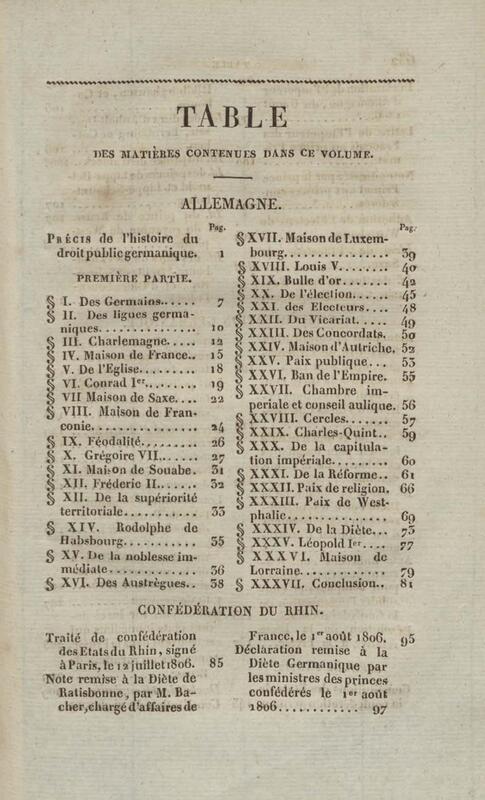 TABLE
DES MATIÈRES CONTENUES DANS CE VOLUME.
ALLEMAGNE.
Pag.
PRÉCIS de l'histoire du
droit public germanique. 1
PREMIÈRE PARTIE.
§ I. Des Germains...... 7
§ II. Des ligues germa-
niques............... 10
§ III. Charlemagne.... 12
§ IV. Maison de France.. 15
§ V. De l'Eglise........ 18
§ VI. Conrad Ier......... 19
§ VII Maison de Saxe.... 22
§ VIII. Maison de Fran-
conie................ 24
§ IX. Féodalité......... 26
§ X. Grégoire VII....... 27
§ XI. Maison de Souabe. 31
§ XII. Fréderic II...... 32
§ XII. De la supériorité
territoriale........... 33
§ XIV. Rodolphe de
Habsbourg........... 35
§ XV. De la noblesse im-
médiate.............. 36
§ XVI. Des Austrègues.. 38
Pag.
§ XVII. Maison de Luxem-
bourg................ 39
§ XVIII. Louis V........ 40
§ XIX. Bulle d'or........ 42
§ XX. De l'élection...... 45
§ XXI. des Electeurs.... 48
§ XXII. Du Vicariat..... 49
§ XXIII. Des Concordats. 50
§ XXIV. Maison d'Autriche. 52
§ XXV. Paix publique... 53
§ XXVI. Ban de l'Empire. 55
§ XXVII. Chambre im-
periale et conseil aulique. 56
§ XXVIII. Cercles...... 57
§ XXIX. Charles-Quint.. 59
§ XXX. De la capitula-
tion impériale......... 60
§ XXXI. De la Réforme.. 61
§ XXXII. Paix de religion. 66
§ XXXIII. Paix de West-
phalie................ 69
§ XXXIV. De la Diète... 73
§ XXXV. Léopold Ier.... 77
§ XXXVI. Maison de
Lorraine............. 79
§ XXXVII. Conclusion.. 81
CONFÉDÉRATION DU RHIN.
Traité de confédération
des Etats du Rhin, signé
à Paris, le 12 juillet 1806. 85
Note remise à la Diète de
Ratisbonne, par M. Ba-
cher, chargé d'affaires de
France, le 1er août 1806. 95
Déclaration remise à la
Diète Germanique par
les ministres des princes
confédérés le 1er août
1806............ 97